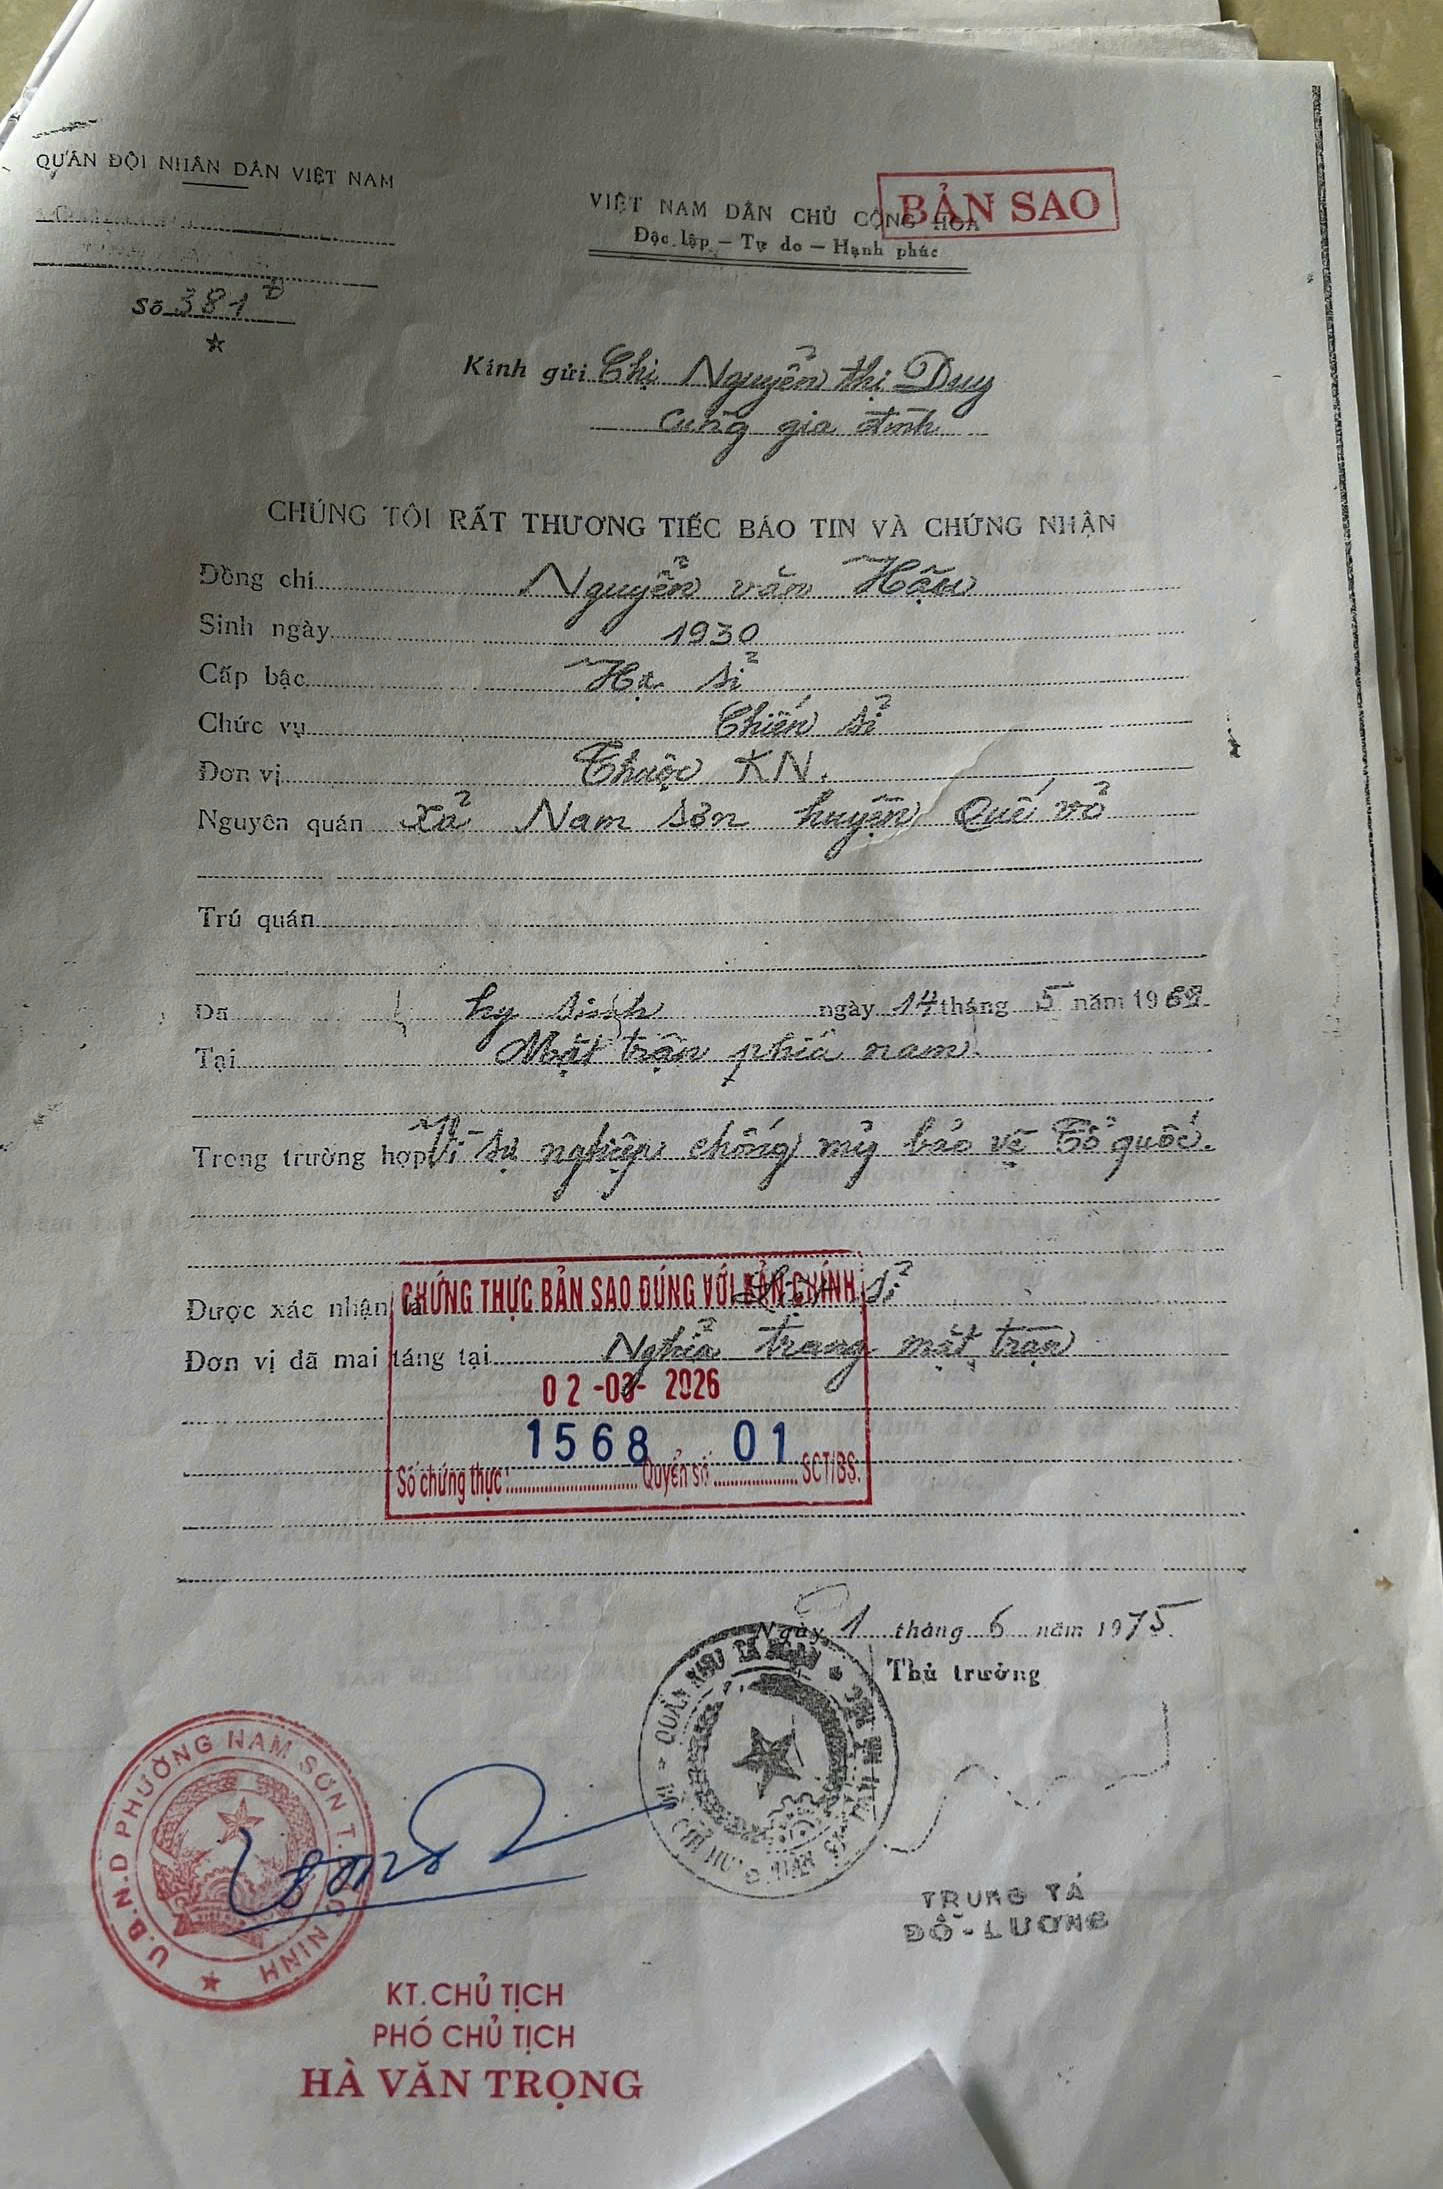 QUÂN ĐỘI NHÂN DÂN VIỆT NAM
VIỆT NAM DÂN CHỦ CỘNG HÒA
BẢN SAO
Độc lập – Tự do – Hạnh phúc
Số 381 Đ
Kính gửi Chị Nguyễn thị Duy
cùng gia đình
CHÚNG TÔI RẤT THƯƠNG TIẾC BÁO TIN VÀ CHỨNG NHẬN
Đồng chí Nguyễn văn Hậu
Sinh ngày 1930
Cấp bậc Hạ sĩ
Chức vụ Chiến sĩ
Đơn vị Thuộc KN.
Nguyên quán xã Nam Sơn huyện Quế võ
Trú quán
Đã hy sinh ngày 14 tháng 5 năm 1968
Tại Mặt trận phía nam.
Trong trường hợp Vì sự nghiệp chống mỹ bảo vệ Tổ quốc.
CHỨNG THỰC BẢN SAO ĐÚNG VỚI BẢN CHÍNH
Được xác nhận là Liệt sĩ
Đơn vị đã mai táng tại Nghĩa trang mặt trận
02 -03- 2026
1568 01
Số chứng thực: Quyển số SCT/BS.
Ngày 1 tháng 6 năm 1975
Thủ trưởng
QUÂN KHU TẢ NGẠN
U.B.N.D PHƯỜNG NAM SƠN T. BẮC NINH
TRUNG TÁ
ĐỖ-LƯƠNG
KT. CHỦ TỊCH
PHÓ CHỦ TỊCH
HÀ VĂN TRỌNG